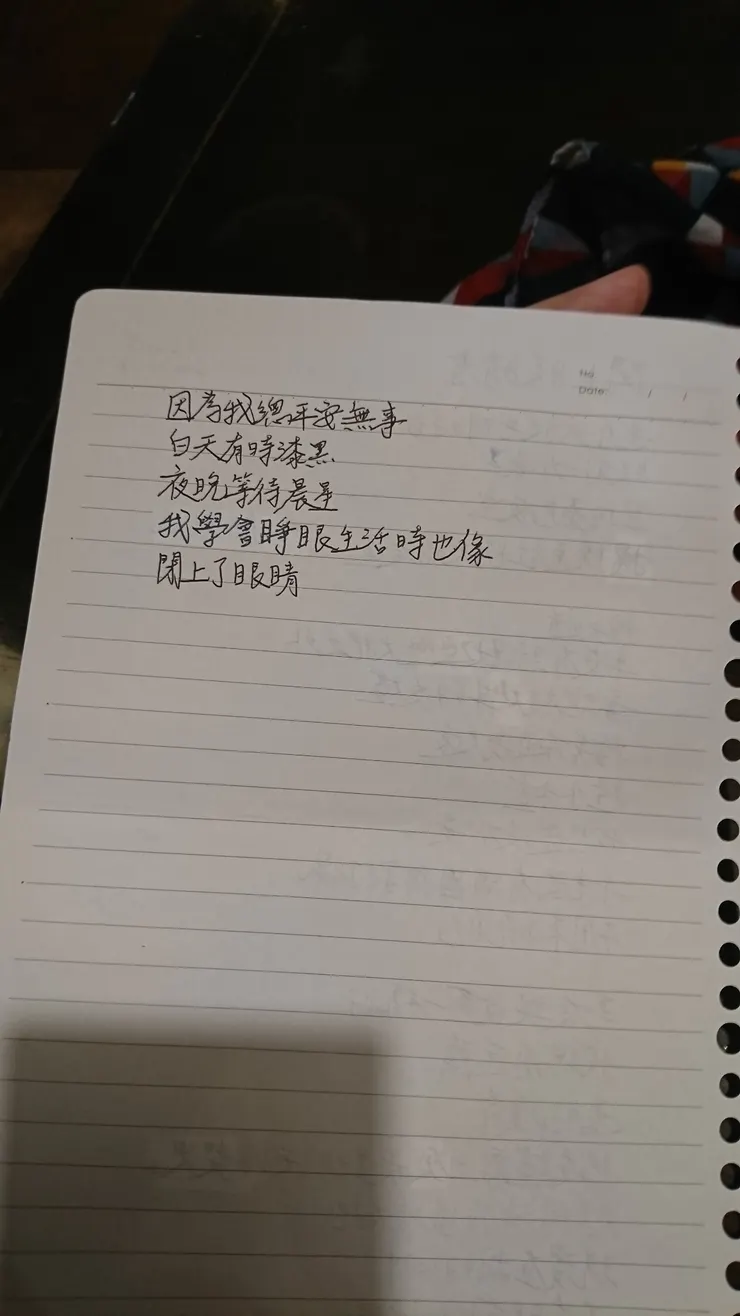 No.
Date / /
因為我總平安無事
白天有時漆黑
夜晚等待晨星
我學會睜眼生活時也像
閉上了眼睛